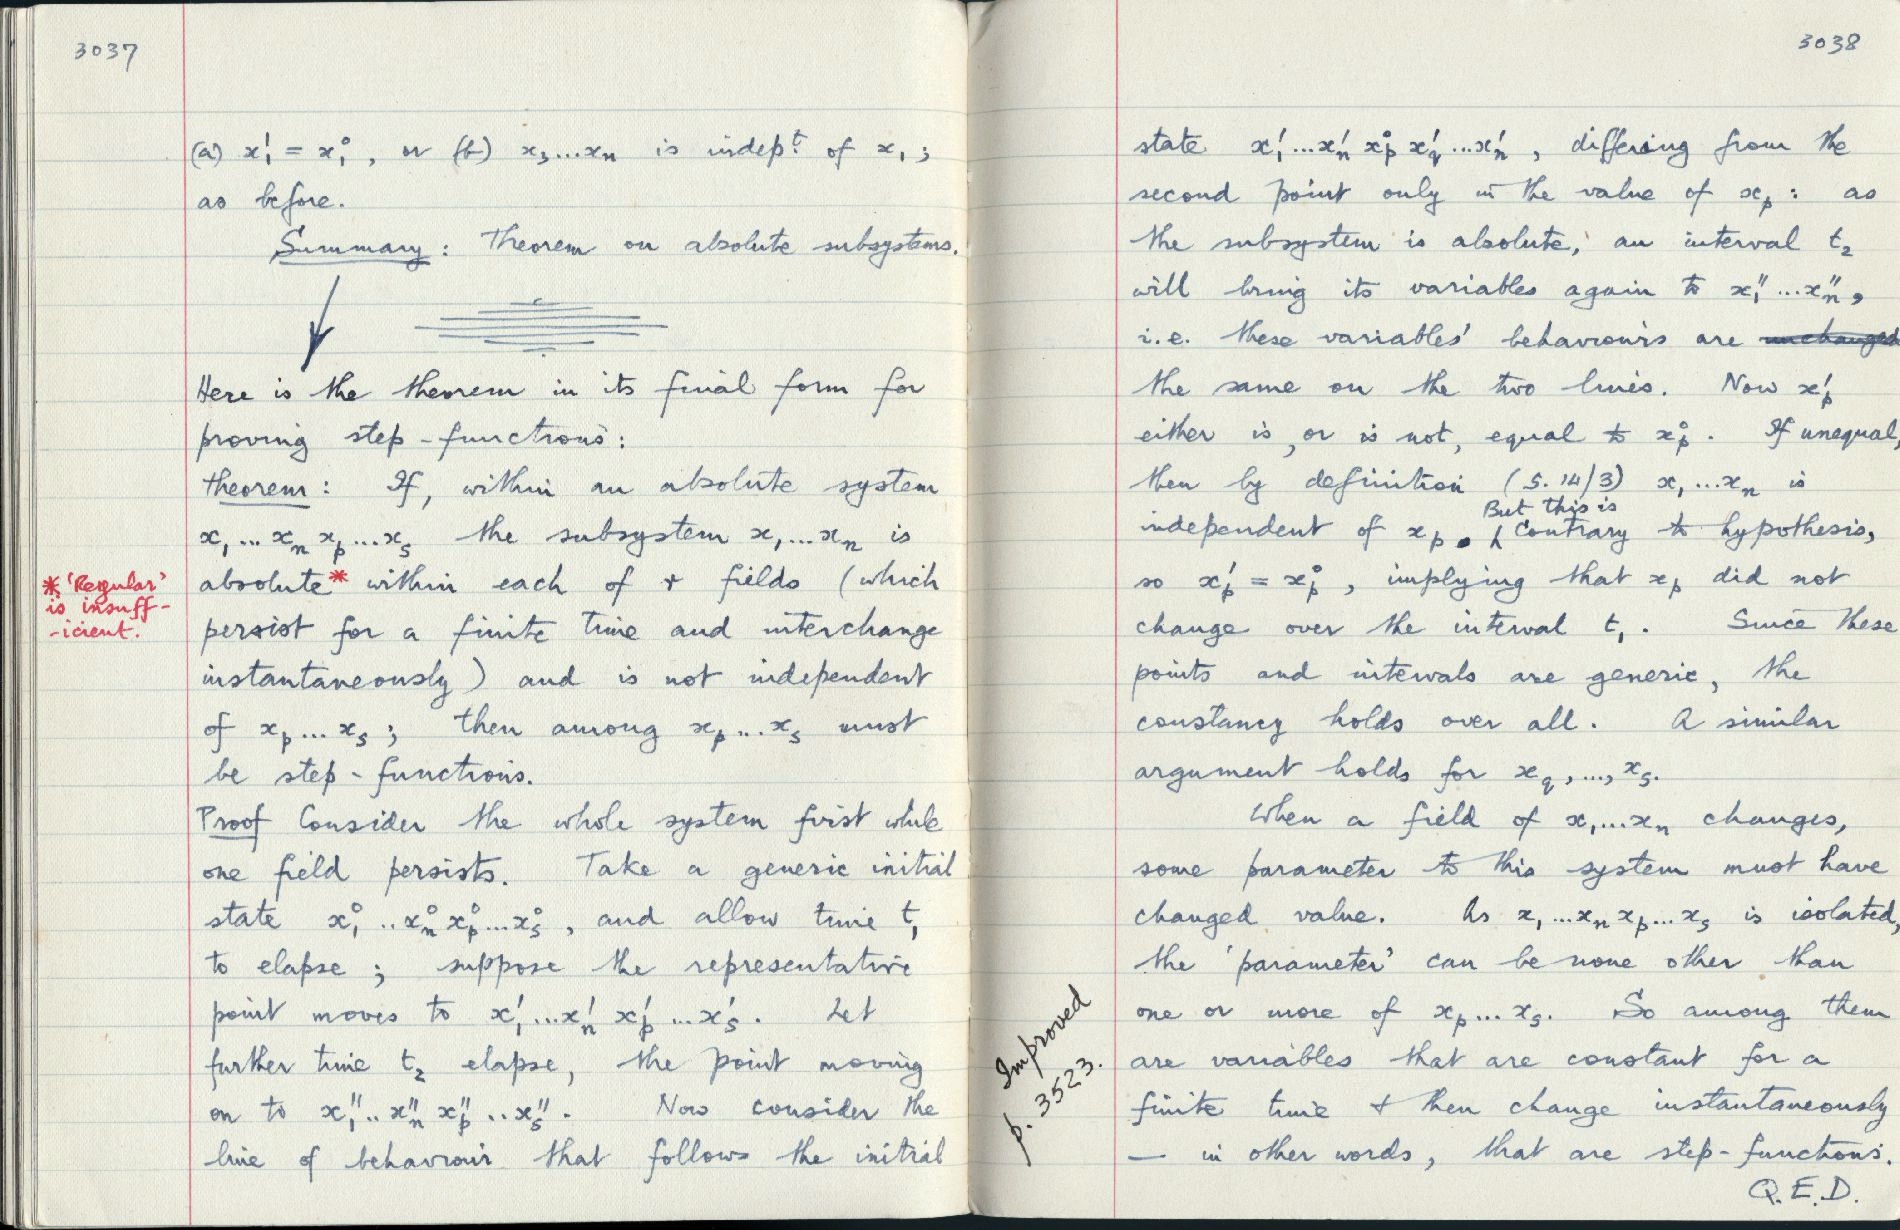 3037
(a) x₁' = x₁⁰, or (b) x₃...xₙ is indepᵗ. of x₁;
as before.
Summary: Theorem on absolute subsystems.
Here is the theorem in its final form for
proving step-functions:
Theorem: If, within an absolute system
x₁...xₙ xₚ...xₛ the subsystem x₁...xₙ is
absolute* within each of r fields (which
* 'Regular'
is insuff-
-icient.
persist for a finite time and interchange
instantaneously) and is not independent
of xₚ...xₛ; then among xₚ...xₛ must
be step-functions.
Proof Consider the whole system first while
one field persists. Take a generic initial
state x₁⁰..xₙ⁰ xₚ⁰...xₛ⁰, and allow time t₁
to elapse; suppose the representative
point moves to x₁'...xₙ' xₚ'...xₛ'. Let
further time t₂ elapse, the point moving
on to x₁''..xₙ'' xₚ''..xₛ''. Now consider the
line of behaviour that follows the initial
3038
state x₁'...xₙ' xₚ⁰ x_q'...xₙ', differing from the
second point only in the value of xₚ: as
the subsystem is absolute, an interval t₂
will bring its variables again to x₁''...xₙ'',
i.e. these variables' behaviours are unchanged
the same on the two lines. Now xₚ'
either is, or is not, equal to xₚ⁰. If unequal,
then by definition (5.14/3) x₁...xₙ is
But this is
independent of xₚ. contrary to hypothesis,
so xₚ' = xₚ⁰, implying that xₚ did not
change over the interval t₁. Since these
points and intervals are generic, the
constancy holds over all. A similar
argument holds for x_q,...,xₛ.
When a field of x₁...xₙ changes,
some parameter to this system must have
changed value. As x₁...xₙ xₚ...xₛ is isolated,
the 'parameter' can be none other than
one or more of xₚ...xₛ. So among them
are variables that are constant for a
finite time & then change instantaneously
— in other words, that are step-functions.
Q.E.D.
Improved
p. 3523.